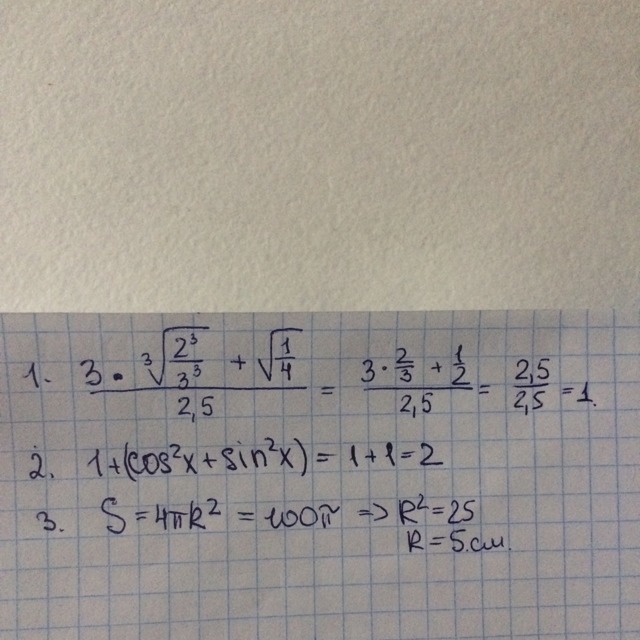 1. 3 · ∛(2³/3³) + √(1/4) / 2,5 = 3 · 2/3 + 1/2 / 2,5 = 2,5/2,5 = 1.
2. 1+(cos²x+sin²x) = 1+1=2
3. S = 4πR² = 100π => R²=25
R = 5 см.